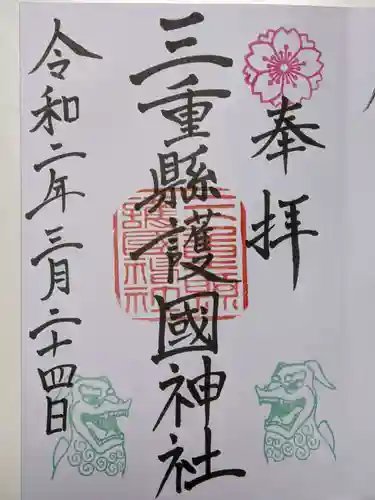 奉拝
三重縣護國神社
令和二年三月二十四日